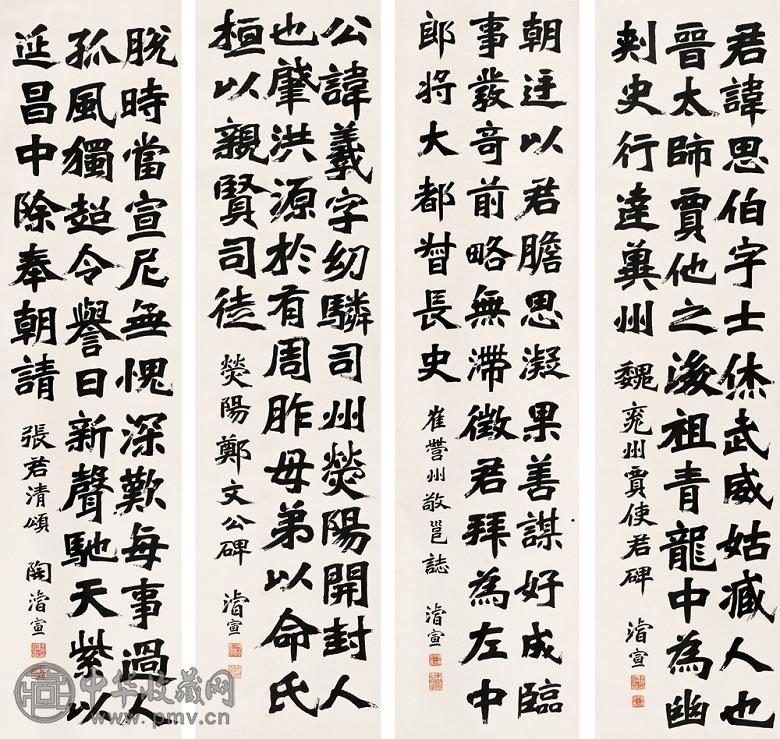 君諱思伯字士休武威姑臧人也
晉太師賈他之後祖青龍中為幽
刾史行達兾州
魏兖州賈使君碑 濬宣
朝廷以君膽思凝果善謀好成臨
事發奇前略無滯徵君拜為左中
郎將大都督長史
崔營州敬邕誌 濬宣
公諱羲字幼驎司州熒陽開封人
也肇洪源於有周胙母弟以命氏
桓以親賢司徒
熒陽鄭文公碑 濬宣
脫時當宣尼無愧深歎每事過人
孤風獨超令譽日新聲馳天紫以
延昌中除奉朝請
張君清頌 陶濬宣
中华收藏网
www.pmv.cn